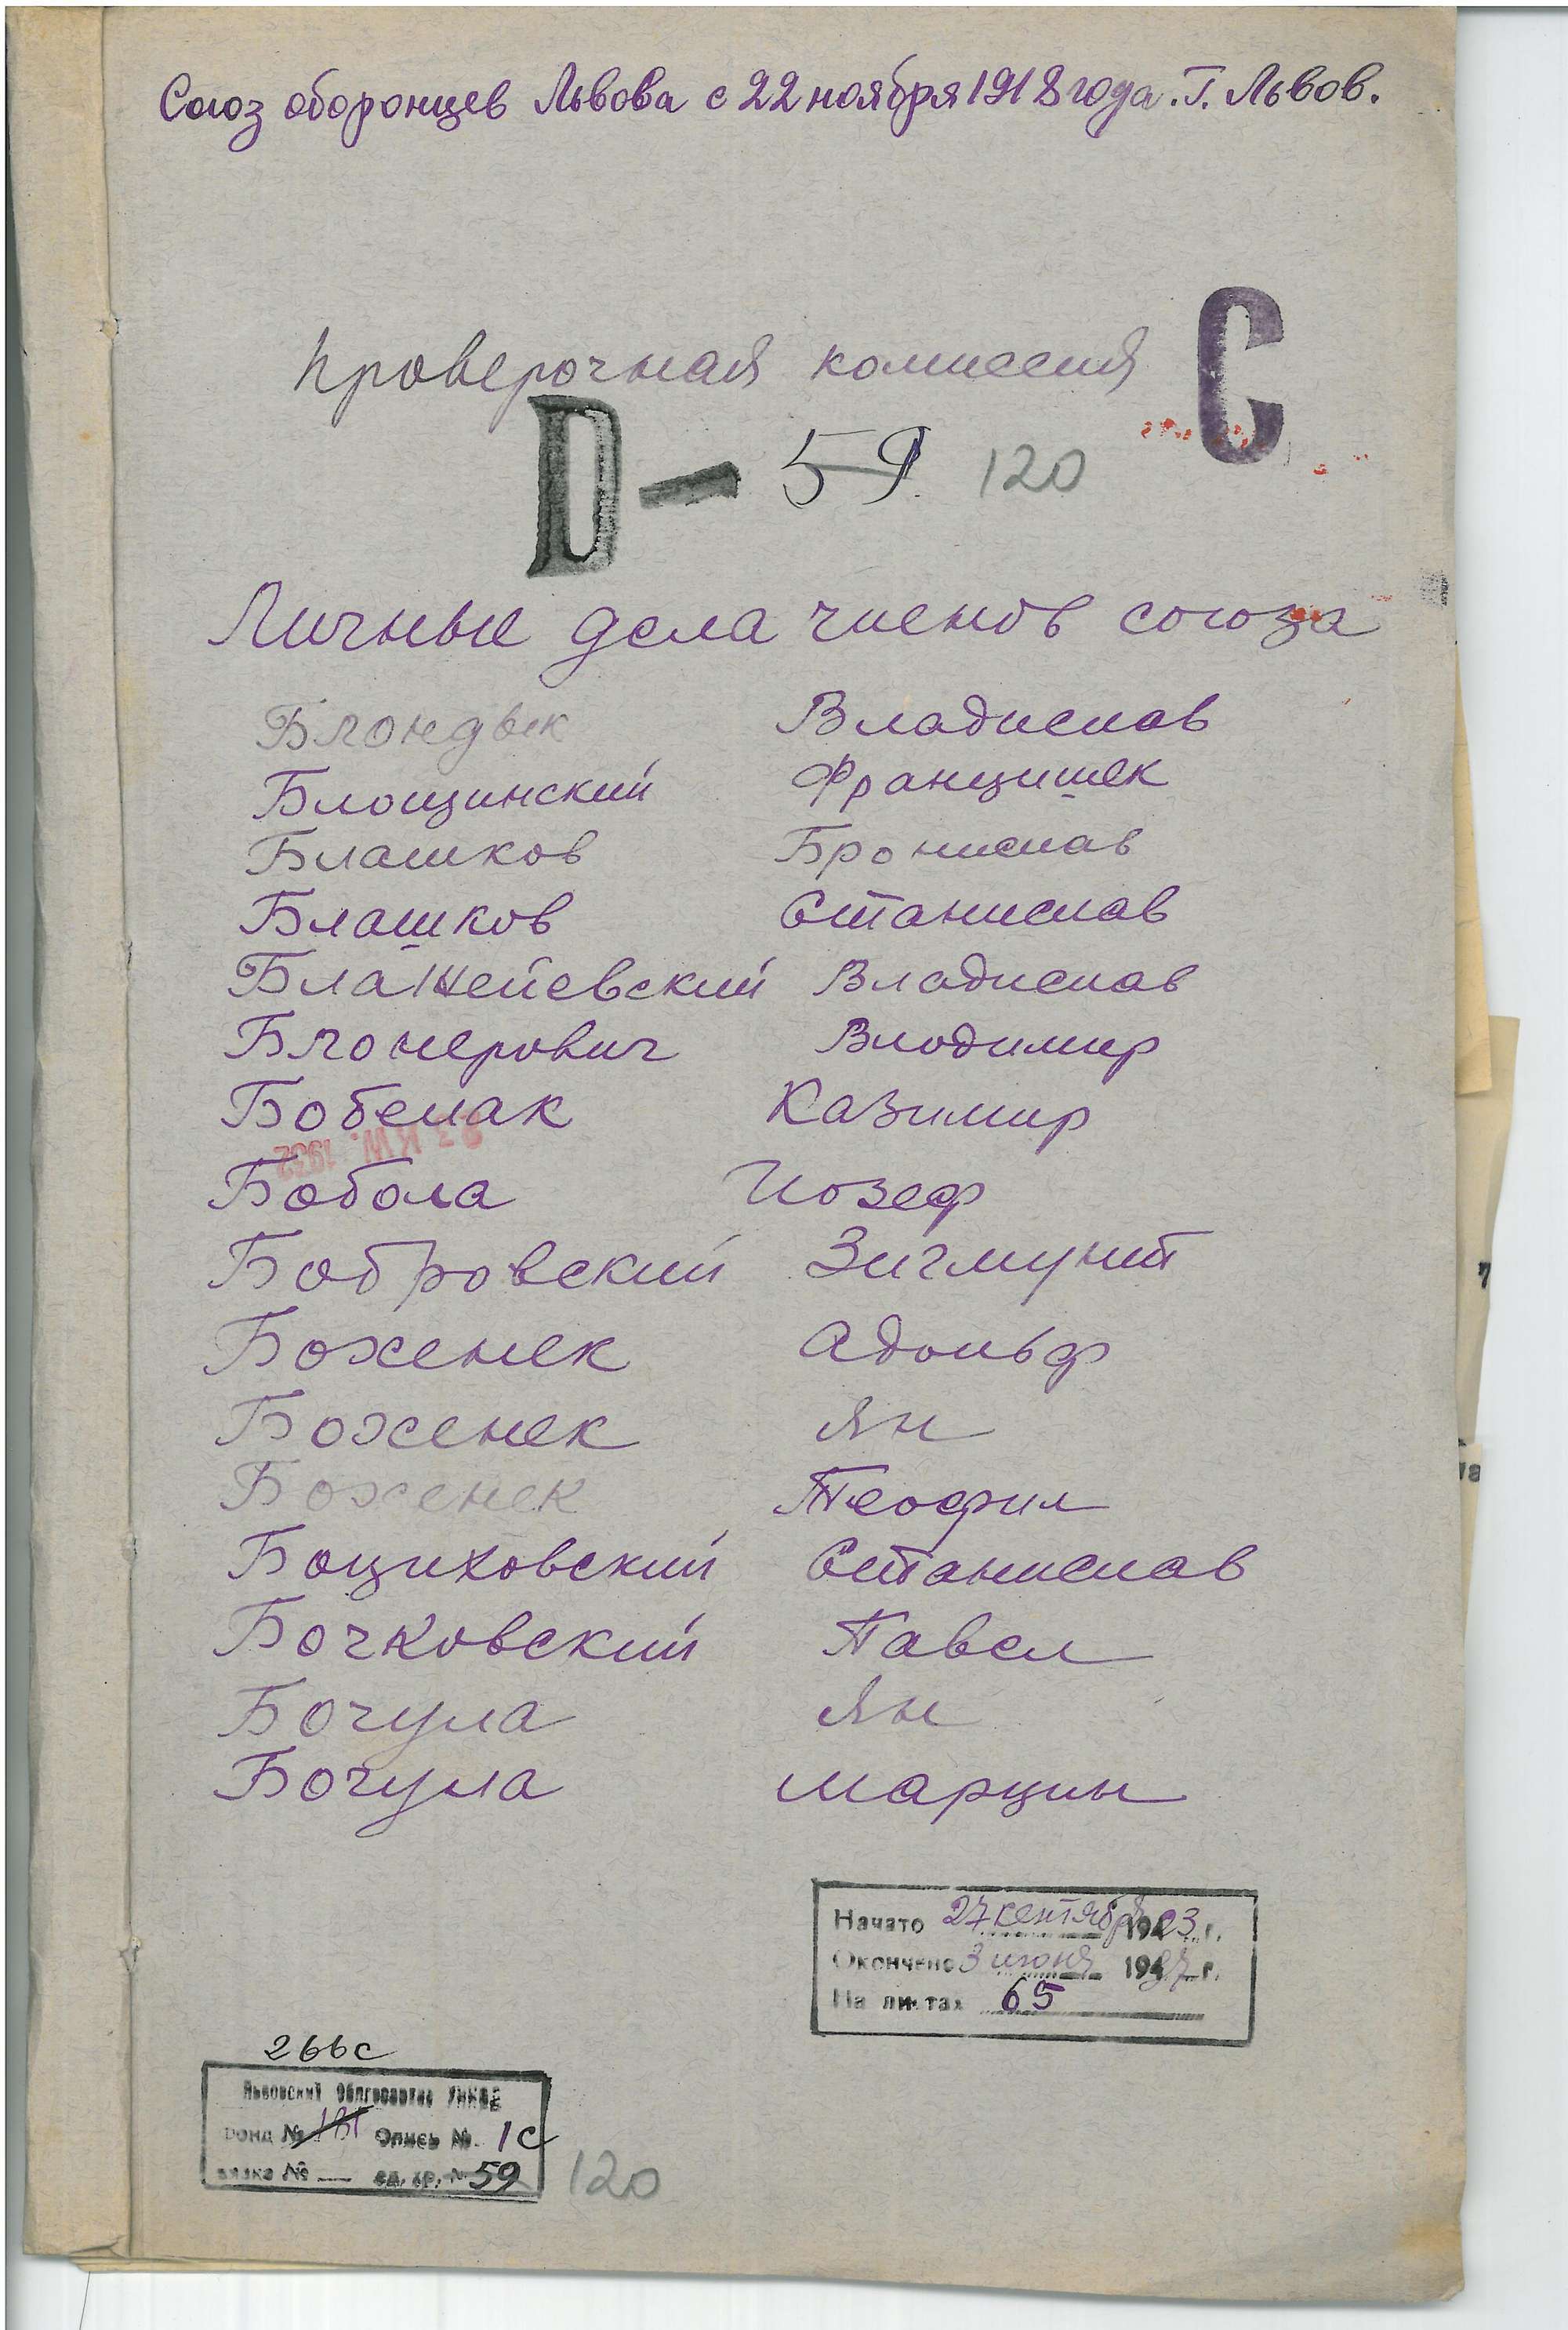 Союз оборонцев Львова с 22 ноября 1918 года. Г. Львов.
Проверочная комиссия
С
D — 59. 120
Личные дела членов союза
Блондык Владислав
Блощинский Францишек
Блашков Бронислав
Блашков Станислав
Блажейевский Владислав
Владимир
Бобелак Казимир
Бобола Иозеф
Бобровский Зигмунт
Боженек Адольф
Боженек Ян
Боженек Теофил
Боциховский Станислав
Бочковский Павел
Бочула Ян
Бочула Марцин
Начато 27 сентября 1923 г.
Окончено 3 июня 1937 г.
На листах 65
266с
Львовский Облгосархив УНКВД
Фонд № 181 Опись №. 1с
вязка № — ед. хр. № 59 120